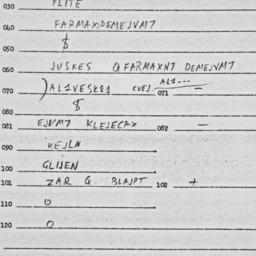 030 YLITE
040 FARMAX;DEMEJVM7
050 $
060 JUSKES QFARMAXN7 DEMEJVM7
070 )AL1VESK81 CVEJ 071 AL1--- —
080 $
081 EJVM7 KLEJECAX 082 —
090 KEJLN
100 GLIJEN
101 ZAR Q BLAJPT 102 +
110 0
120 0